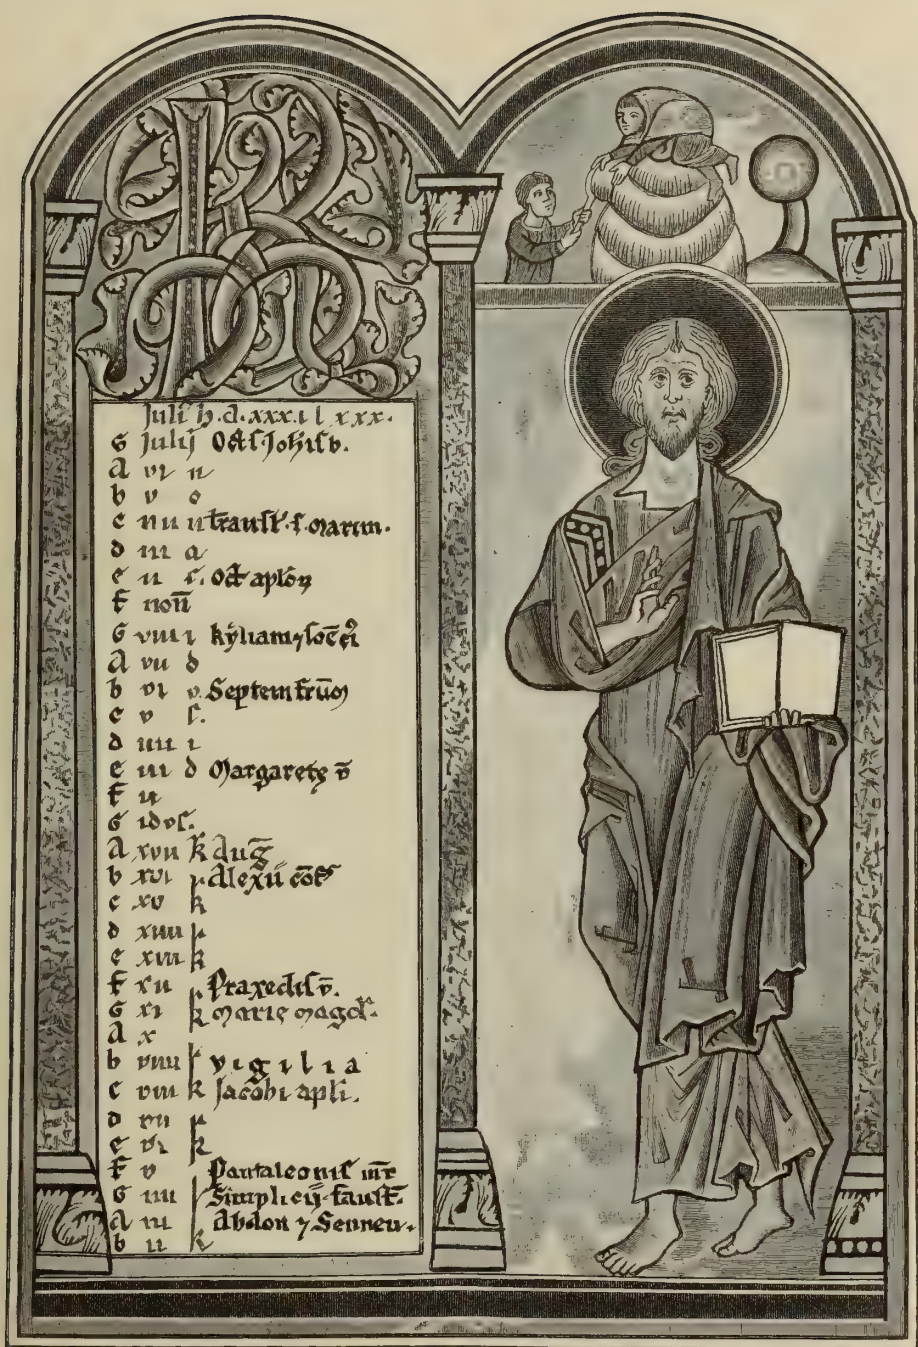 Juli h.d.xxx.i l xxx.
G Julij Oct̄ Johis b.
A vi n
b v o
c iiii n transl̄. s. Martin.
d iii a
e ii s. Oct̄ aplo℞
f non̄
G viii i kyliani ⁊ soc̄ ei⁹
A vii d
b vi v Septem fr̄um
c v s.
d iiii i
e iii d Margaretę v̄
f ii
G idus.
A xvii k Aug̅
b xvi k Alexii cōf
c xv k
d xiiii k
e xiii k
f xii k Praxedis v̄.
G xi k Marię Magd̄l.
A x
b viiii k vigilia
c viii k Jacobi apl̄i.
d vii k
e vi k
f v Pantaleonis m̄r
G iiii k Simplicij. faust̄.
A iii Abdon ⁊ Sennen.
b ii k